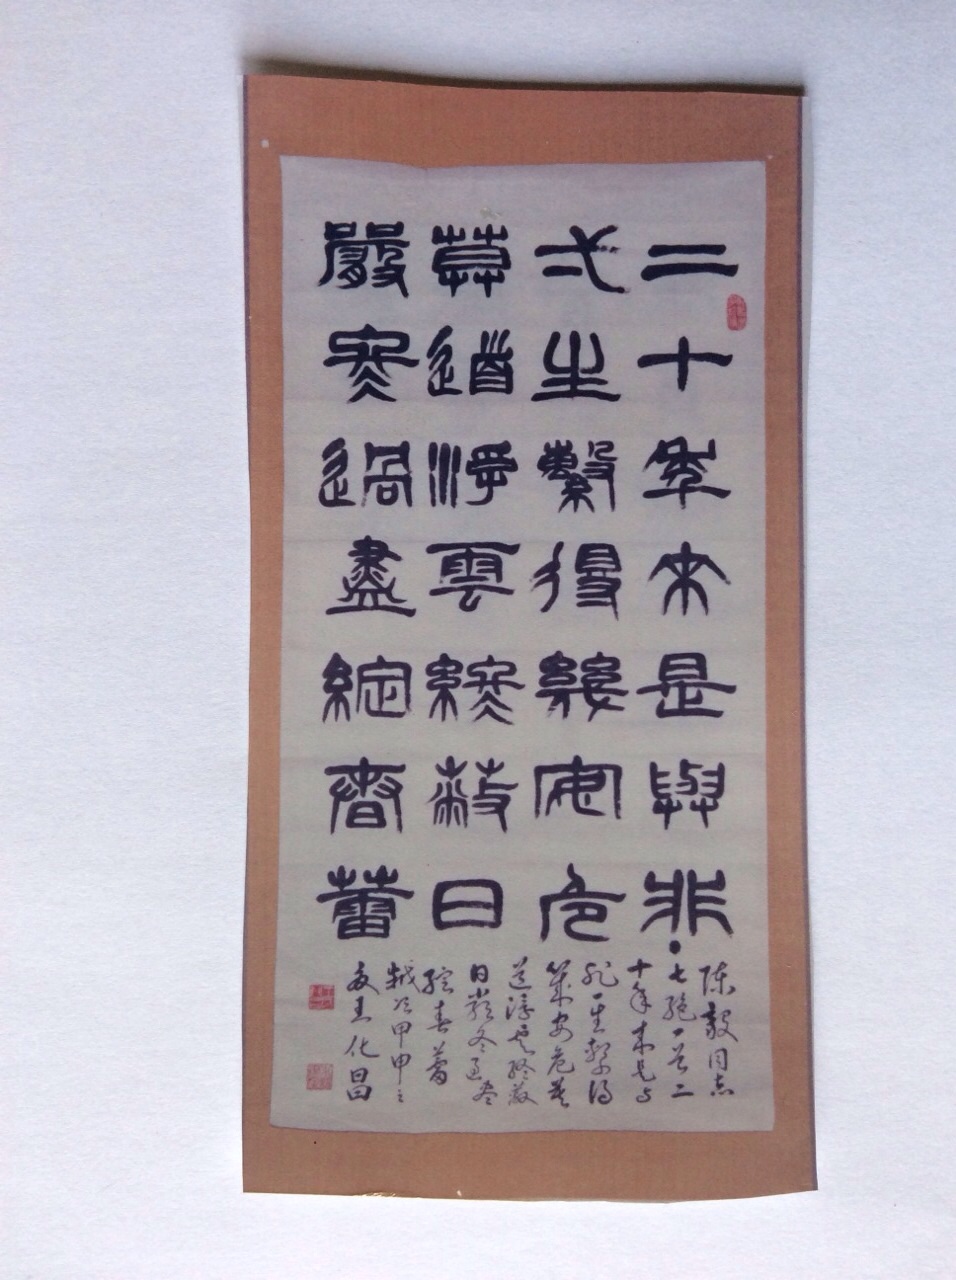 二十年來是與非
弌生繫得幾安危
莫道浮雲終蔽日
嚴冬過盡綻春蕾
陳毅同志
七絕一首二
十年来是与
非一生繫得
幾安危莫
道浮雲終蔽
日嚴冬过尽
綻春蕾
歲次甲申之
夏王化昌